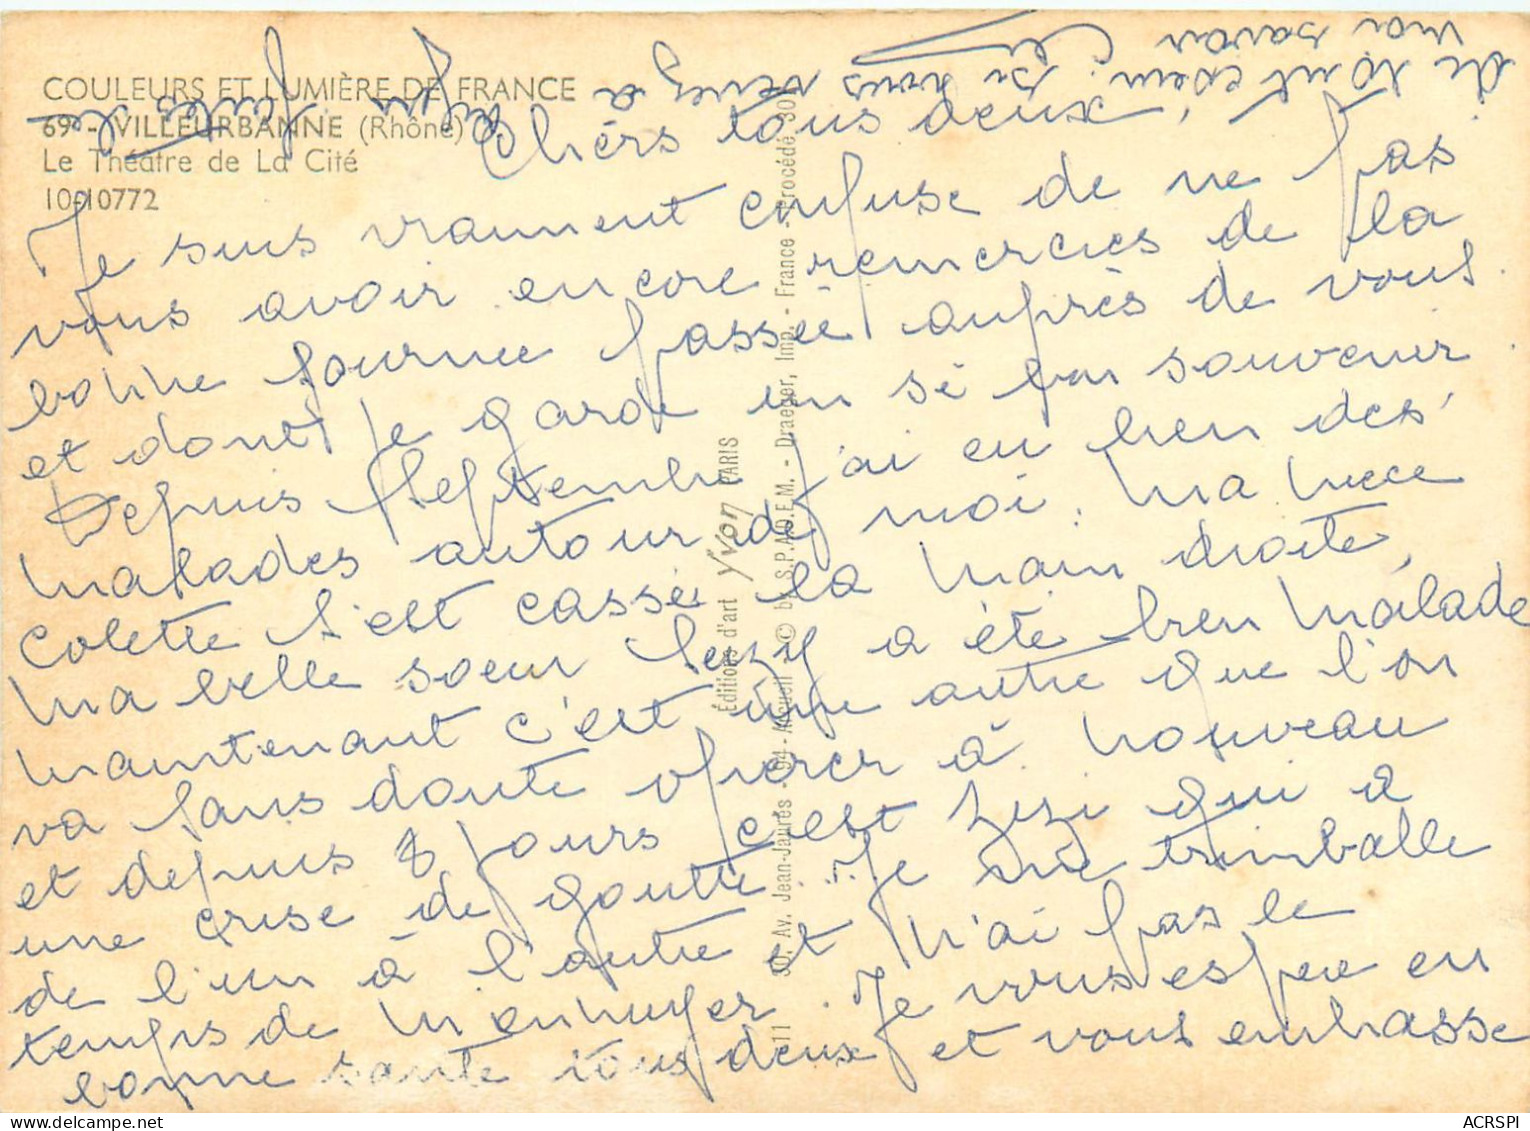 COULEURS ET LUMIÈRE DE FRANCE
69 - VILLEURBANNE (Rhône)
Le Théâtre de La Cité
10-10772
Chers tous deux,
Je suis vraiment confuse de ne pas
vous avoir encore remercies de la
bonne journee passée auprès de vous
et dont je garde un si bon souvenir.
Depuis Septembre j'ai eu bien des
malades autour de moi. Ma niece
Colette s'est cassée la main droite,
ma belle soeur Suzy a été bien malade
maintenant c'est une autre que l'on
va sans doute opérer à nouveau
et depuis 8 jours c'est Zizi qui a
une crise de goutte. Je me trimballe
de l'un à l'autre et n'ai pas le
temps de m'ennuyer. Je vous espere en
bonne sante tous deux et vous embrasse
de tout coeur. Si vous venez à
Lyon faites le
moi savoir
Éditions d'art Yvon PARIS
30, Av. Jean-Jaurès - 94 - Arcueil - © by S.P.A.D.E.M. - Draeger, Imp. - France - Procédé 301
11
ACRSPI